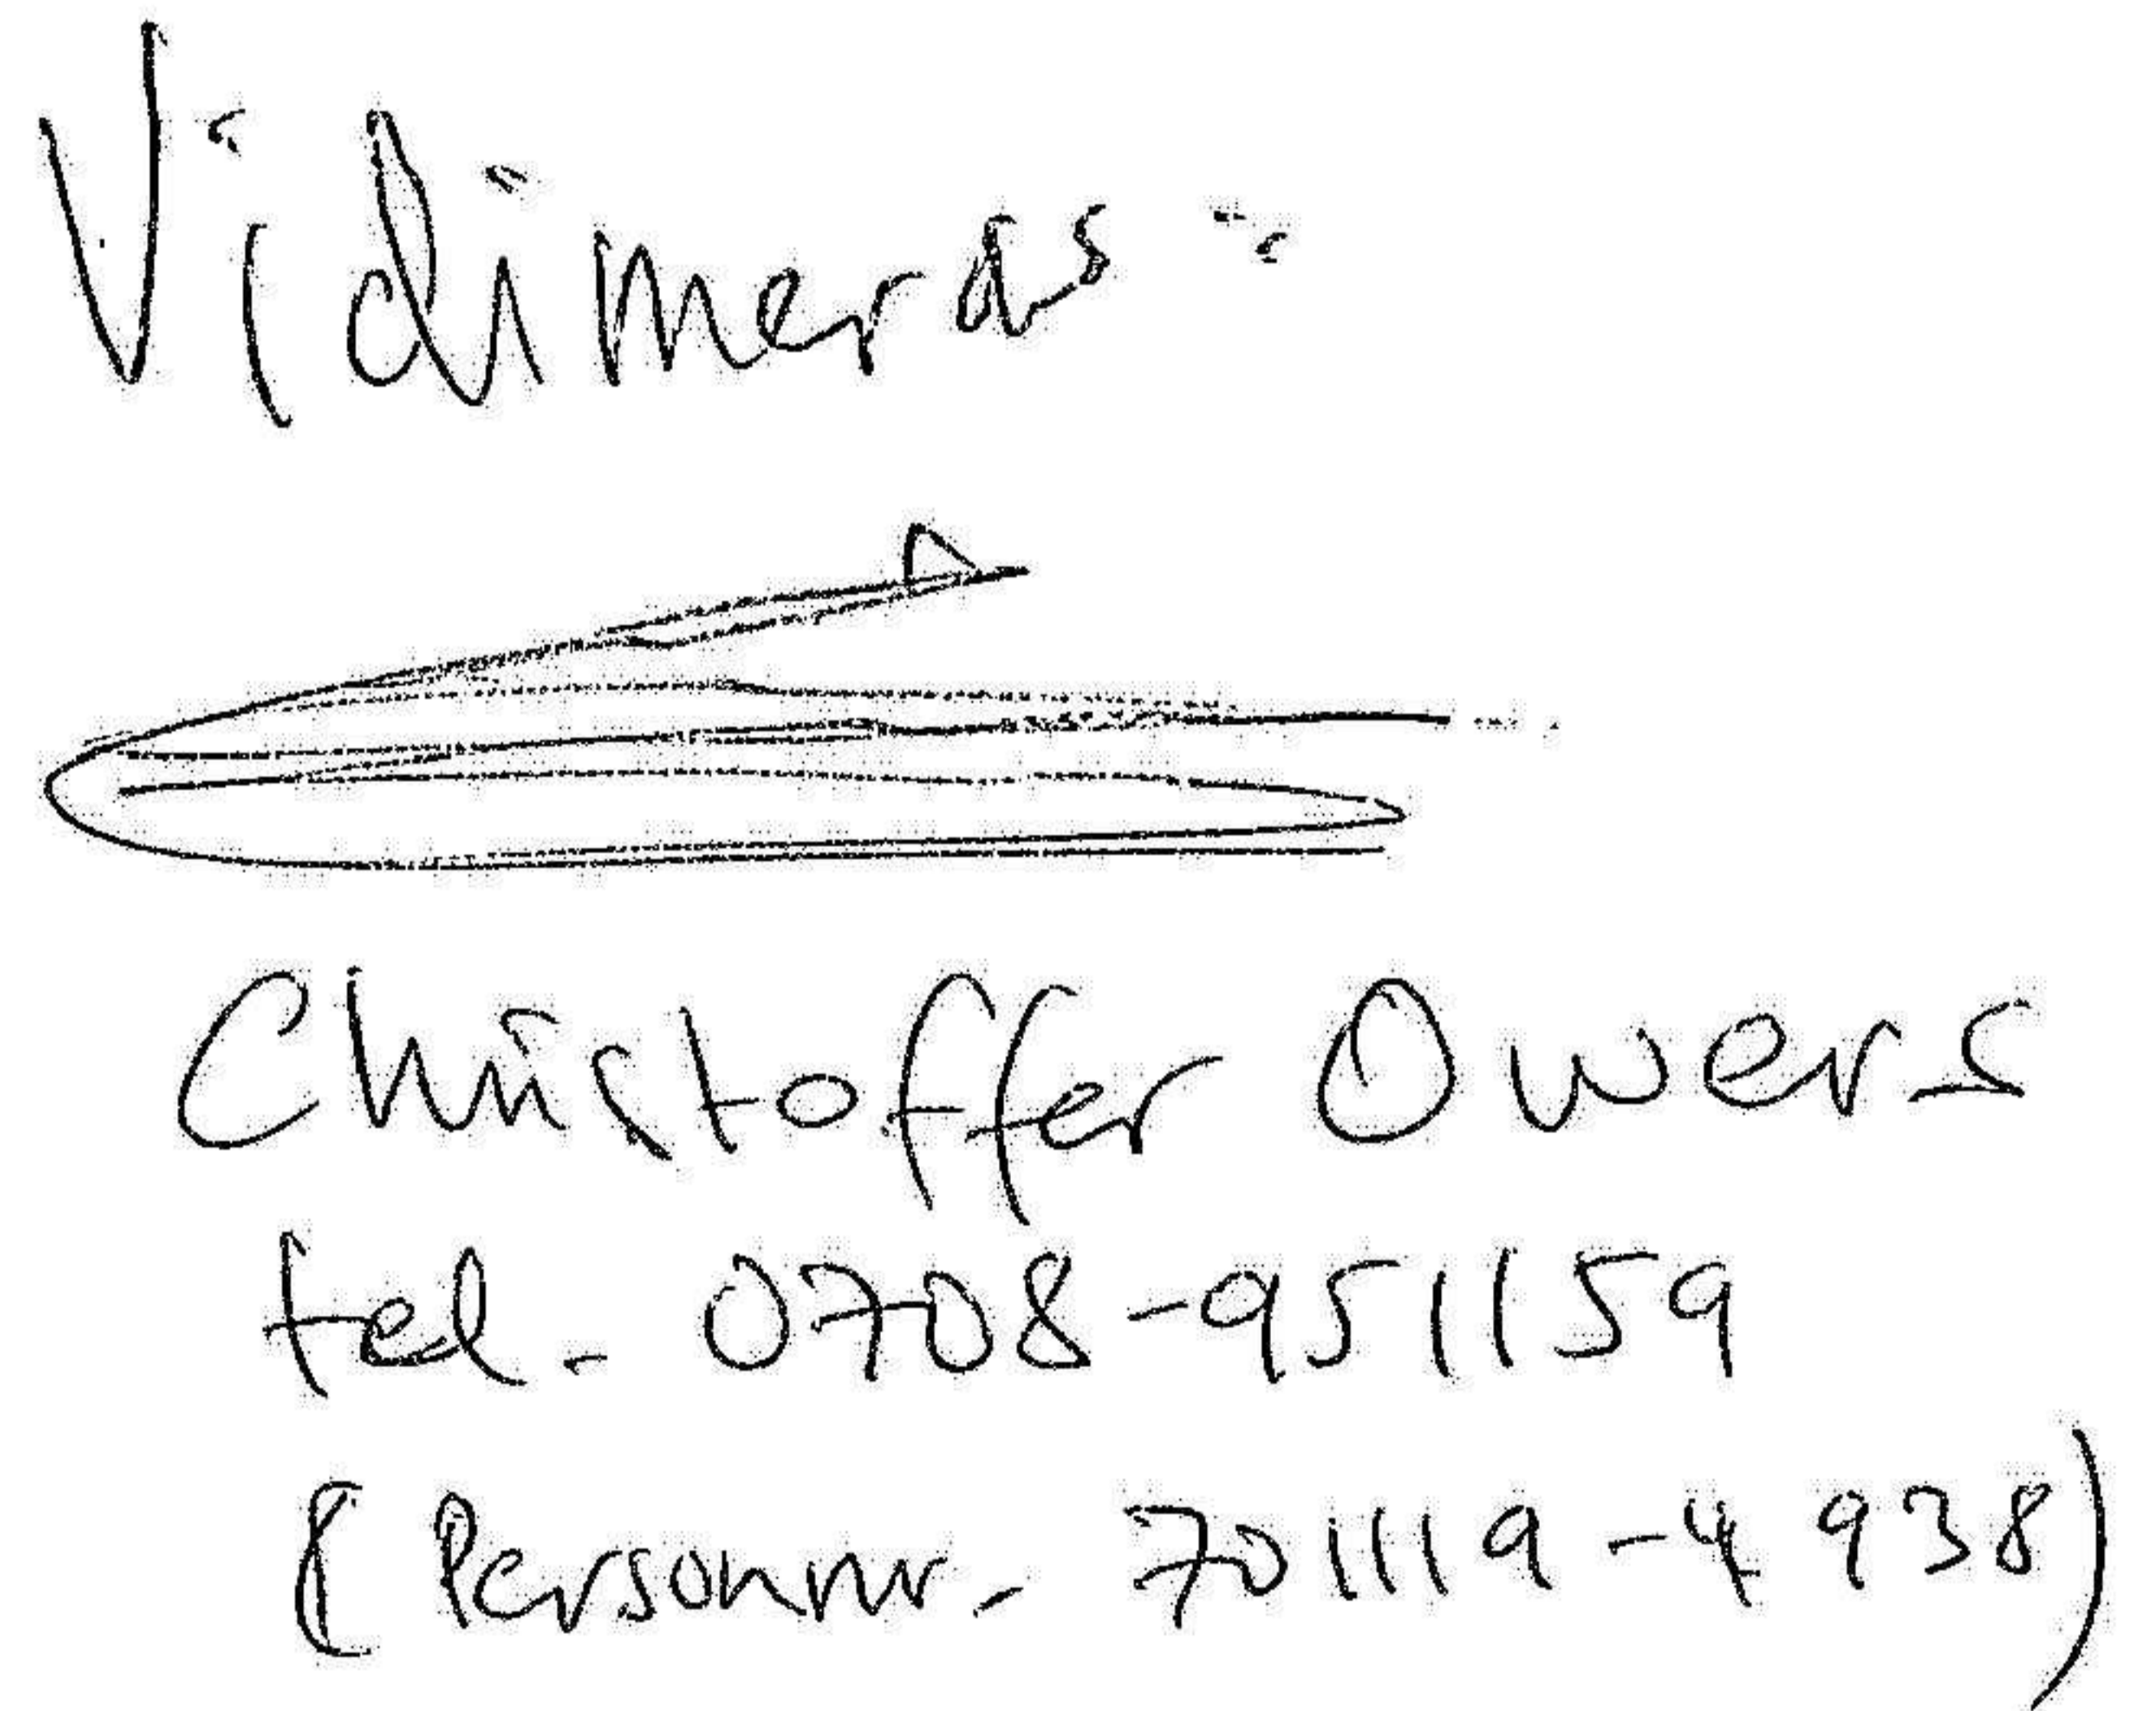 Vidimeras:
Christoffer Owers
tel. 0708-951159
(Personnr. 701119-4938)